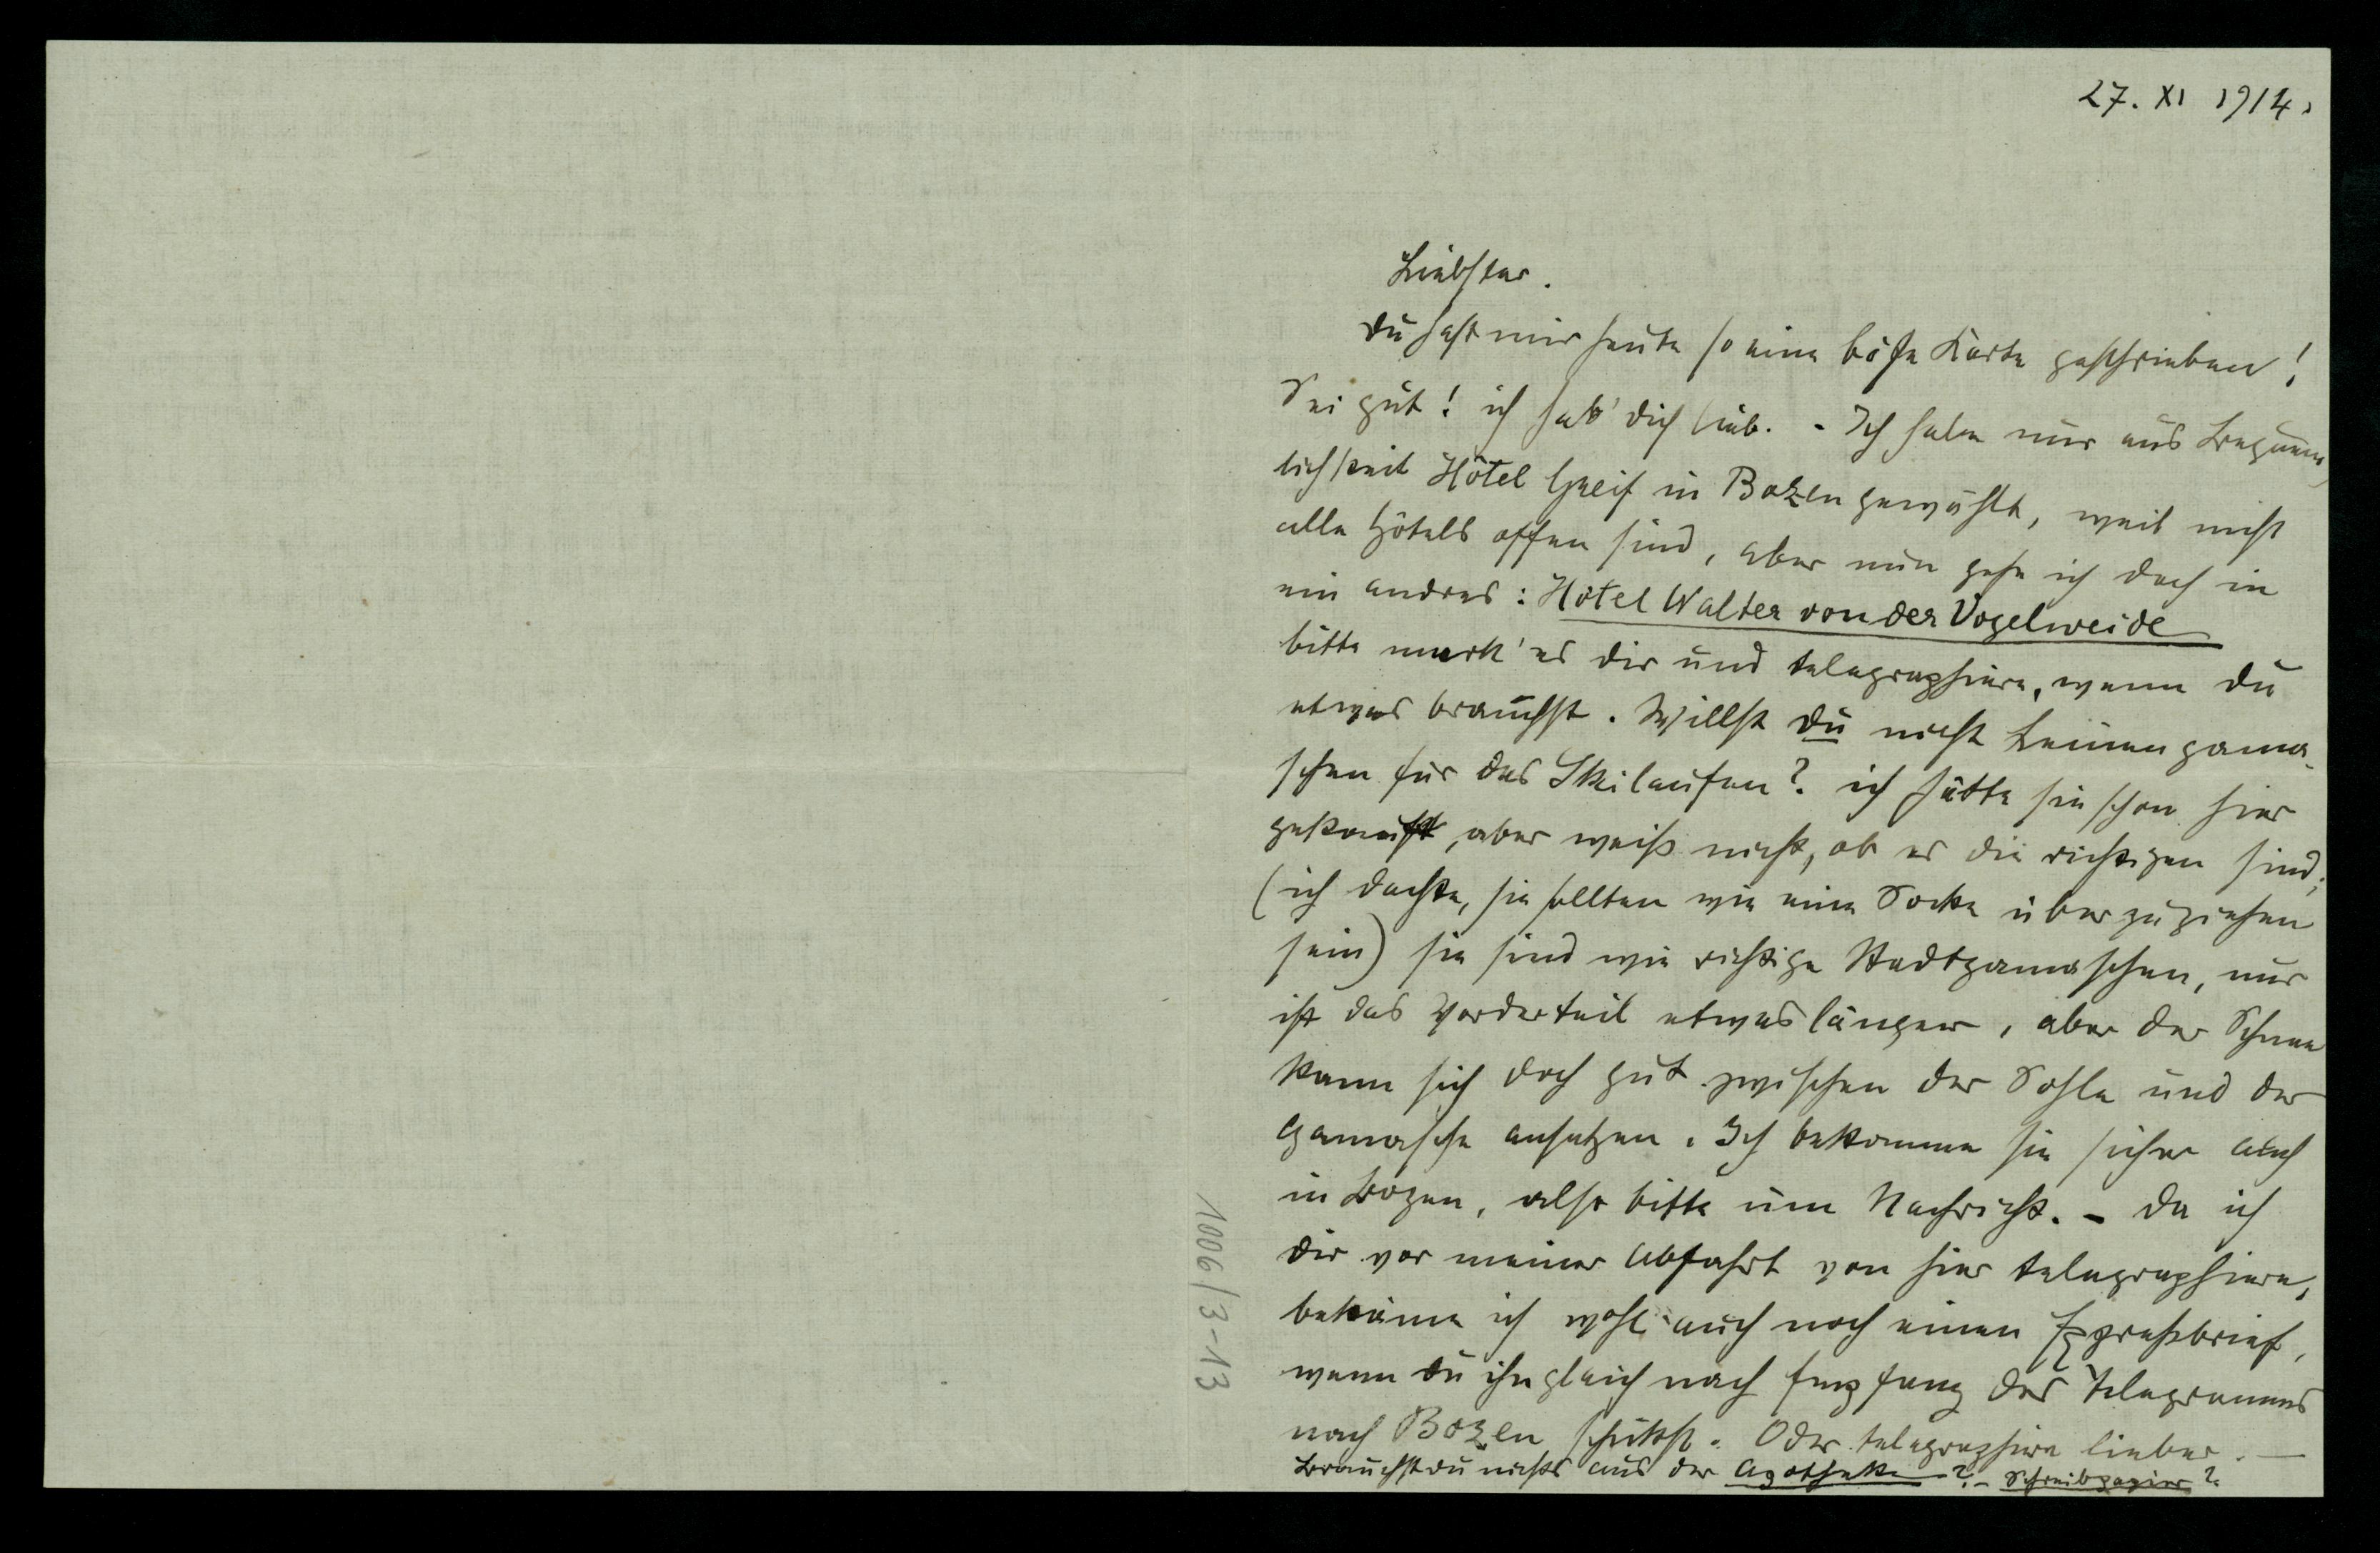 27. XI 1914.
Liebster.
Du hast mir heute so eine böse Karte geschrieben!
Sei gut! ich hab' dich lieb. - Ich habe nur aus Bequem
lichkeit Hôtel Greif in Bozen gewählt, weil nicht
alle Hôtels offen sind, aber nun gehe ich doch in
ein andres: Hôtel Walter von der Vogelweide
bitte merk' es dir und telegraphiere, wenn du
etwas brauchst. Willst du nicht Leinengama-
schen für das Skilaufen? ich hätte sie schon hier
gekauft, aber weiß nicht, ob es die richtigen sind;
(ich dachte, sie sollten wie eine Socke überzuziehen
sein) sie sind wie richtige Stadtgamaschen, nur
ist das Vorderteil etwas länger, aber der Schnee
kann sich doch gut zwischen der Sohle und der
Gamasche ansetzen. Ich bekomme sie sicher auch
in Bozen, also bitte um Nachricht. - Da ich
dir vor meiner Abfahrt von hier telegraphiere,
bekäme ich wohl auch noch einen Expreßbrief,
wenn du ihn gleich nach Empfang des Telegrammes
nach Bozen schickst. Oder telegraphiere lieber. —
Brauchst du nichts aus der Apotheke? - Schreibpapier?
1006/3-13